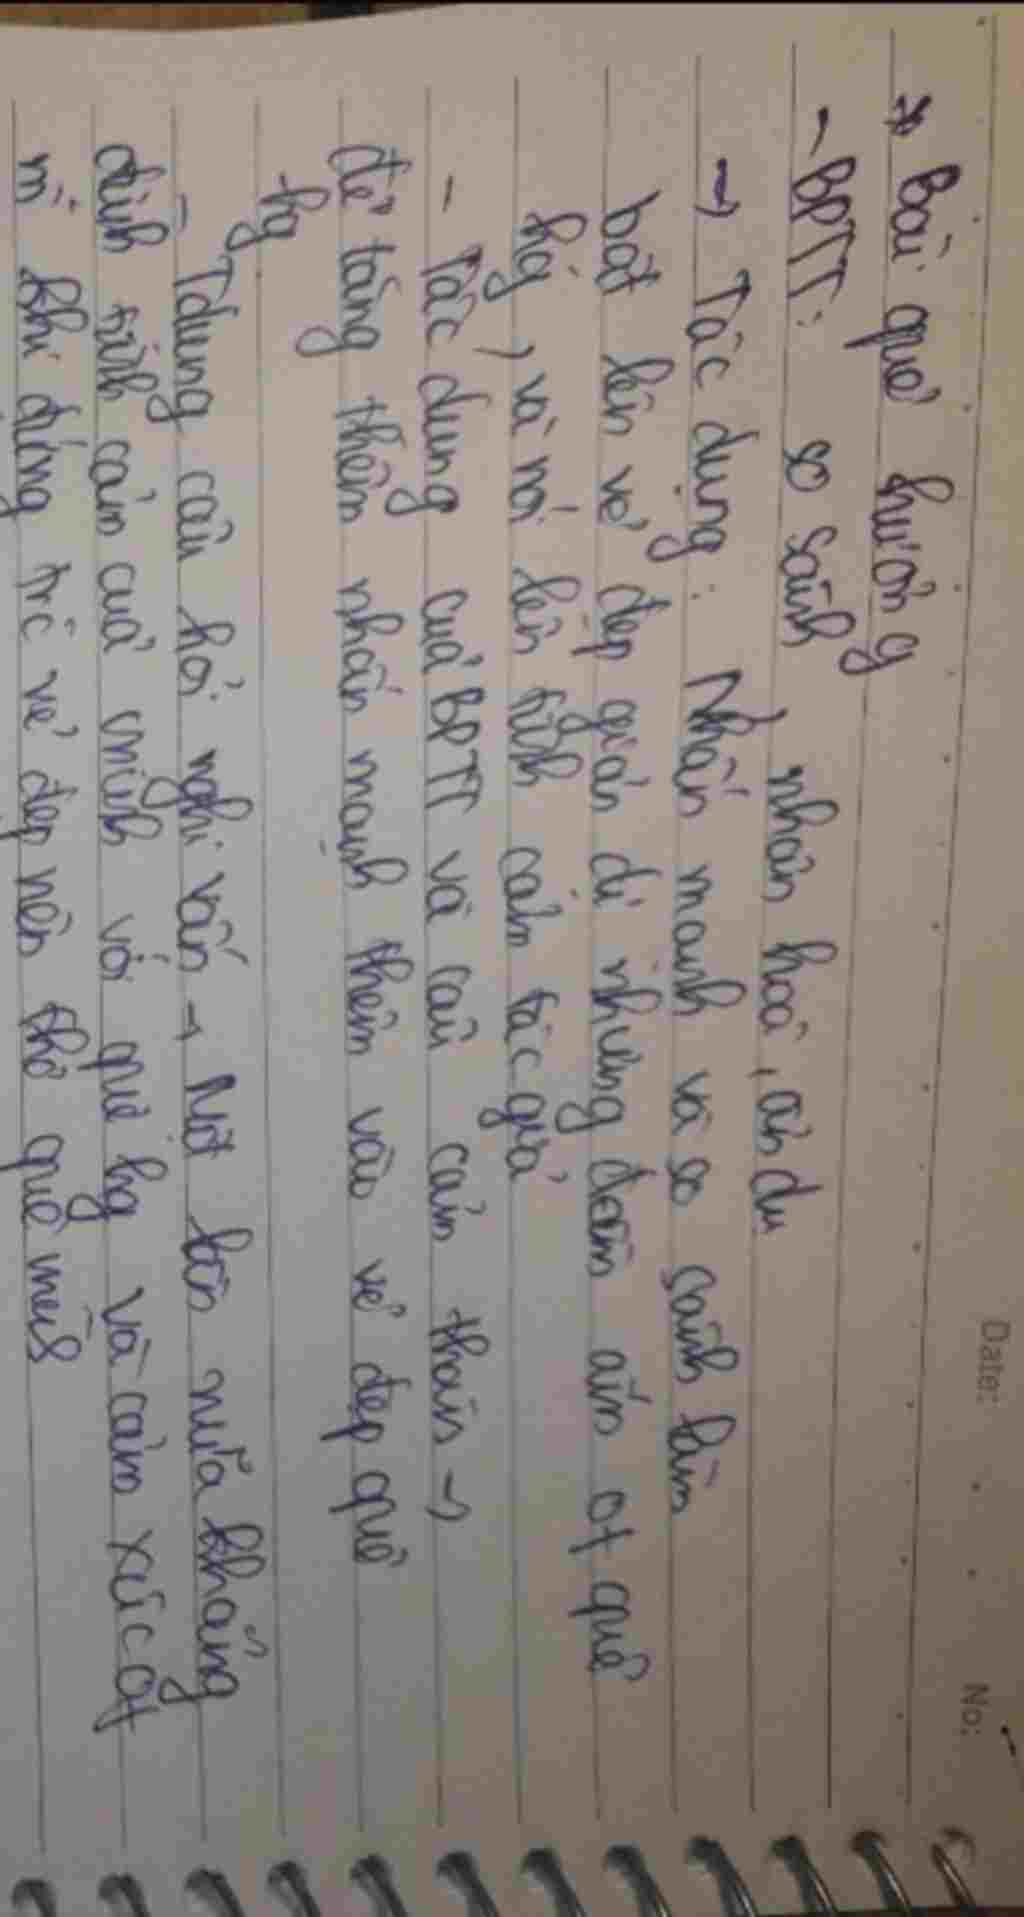 Date: No:
* Bài quê hương
- BPTT: so sánh, nhân hoá, ẩn dụ
→ Tác dụng: Nhấn mạnh và so sánh làm
bật lên vẻ đẹp giản dị nhưng đằm ấm of quê
hg, và nói lên tình cảm tác giả
- Tác dụng cuả BPTT và câu cảm thán →
để tăng thêm nhấn mạnh thêm vào vẻ đẹp quê
hg
- Tdụng câu hỏi nghi vấn → Một lần nữa khẳng
định tình cảm cuả mình với quê hg và cảm xúc of
m khi đứng trc vẻ đẹp nên thơ quê mình